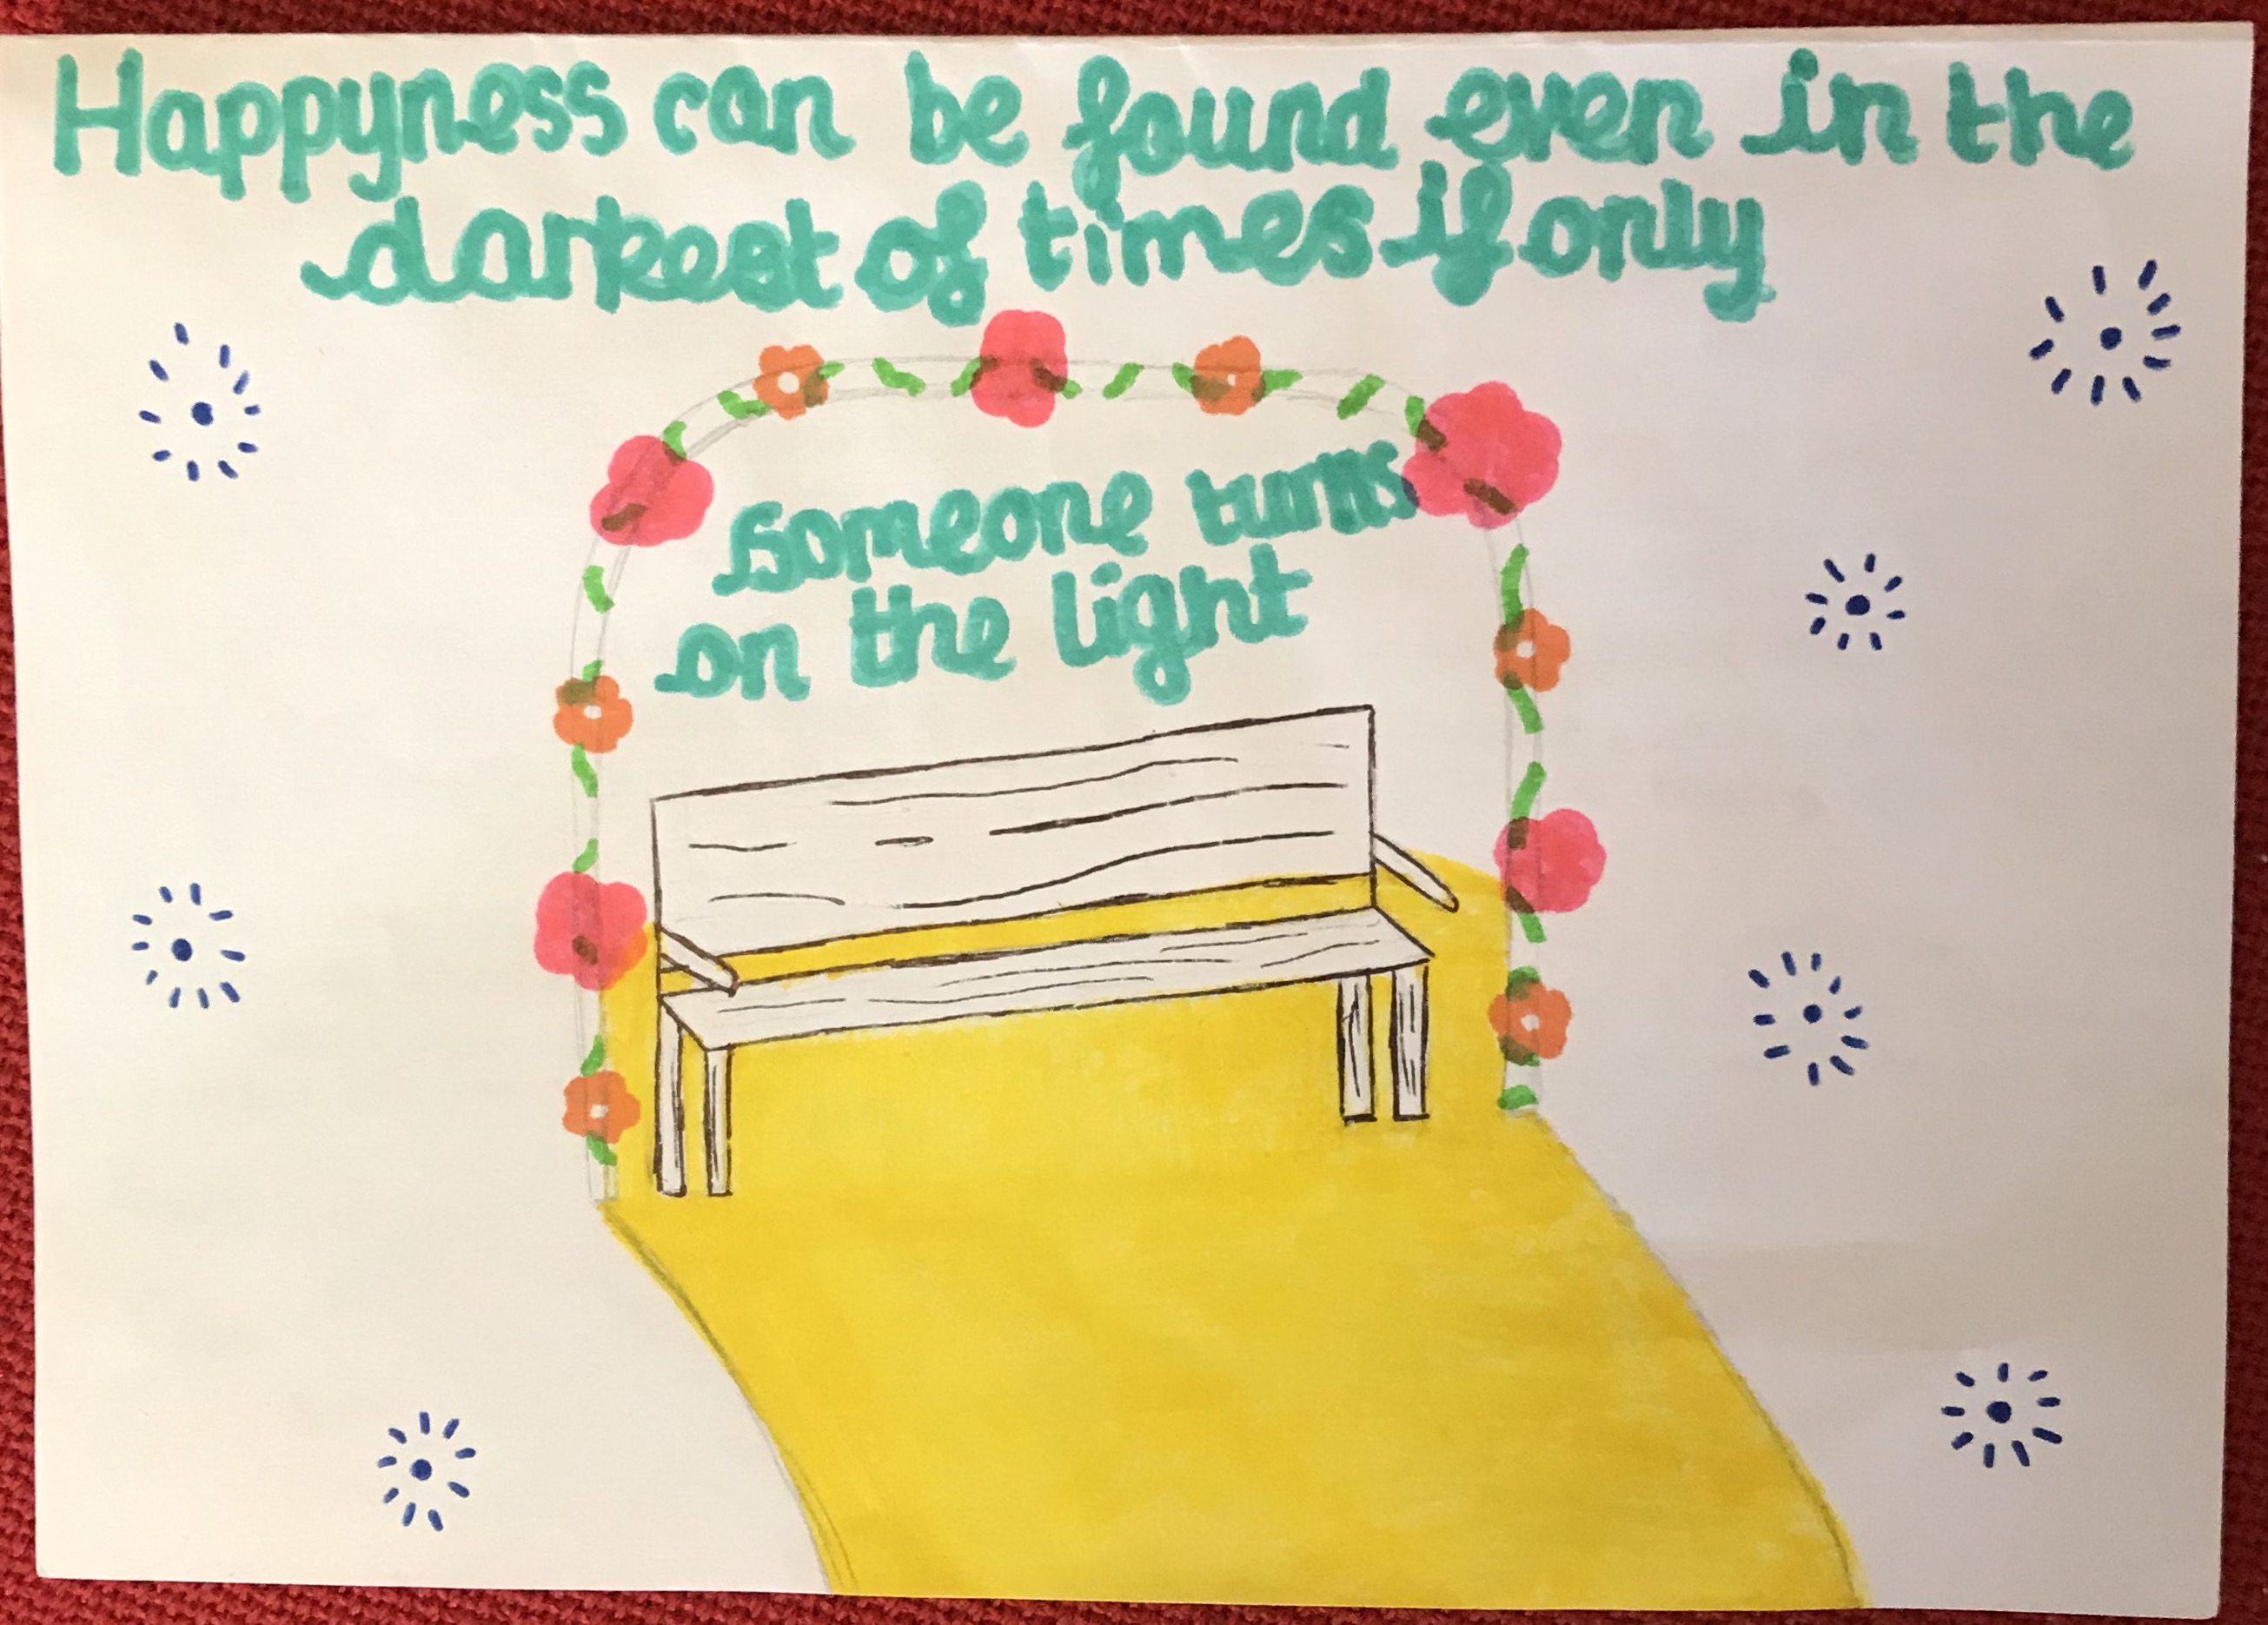 Happyness can be found even in the
darkest of times if only
someone turns
on the light